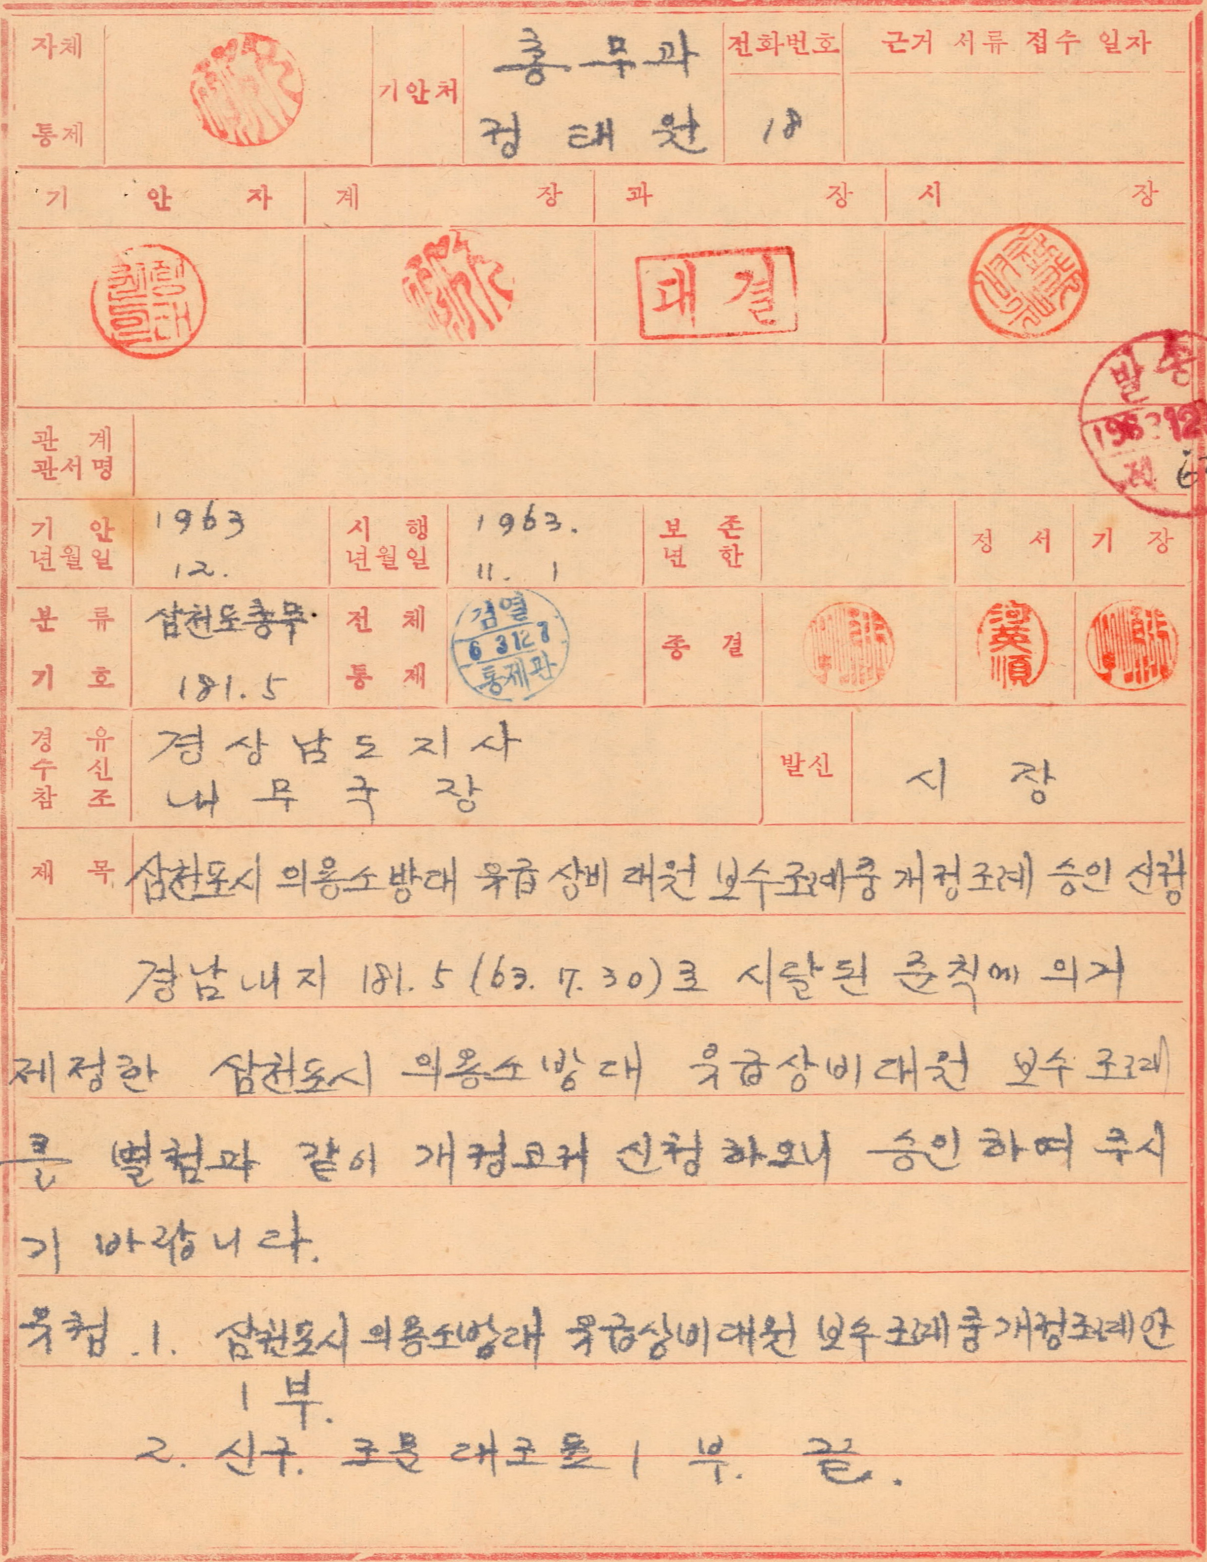 자체
통제
기안처
총무과
정태원
전화번호
18
근거 서류 접수 일자
기 안 자
계 장
과 장
시 장
대결
관 계
관서명
발송
1963 12
제
기 안
년월일
1963
12.
시 행
년월일
1963.
11. 1
보 존
년 한
정 서
기 장
분 류
기 호
삼천포총무
181.5
전 체
통 제
검열
63 12
통제관
종 결
河英順
경 유
수 신
참 조
경상남도지사
내무국장
발신
시 장
제 목
삼천포시 의용소방대 유급 상비 대원 보수조례중 개정조례 승인 신청
경남내지 181.5 (63. 7. 30)로 시달된 준칙에 의거
제정한 삼천포시 의용소방대 유급상비대원 보수 조례
를 별첨과 같이 개정코저 신청하오니 승인하여 주시
기 바랍니다.
유첨 .1. 삼천포시 의용소방대 유급상비대원 보수 조례중개정조례안
1부.
2. 신구. 조문 대조표 1 부. 끝.